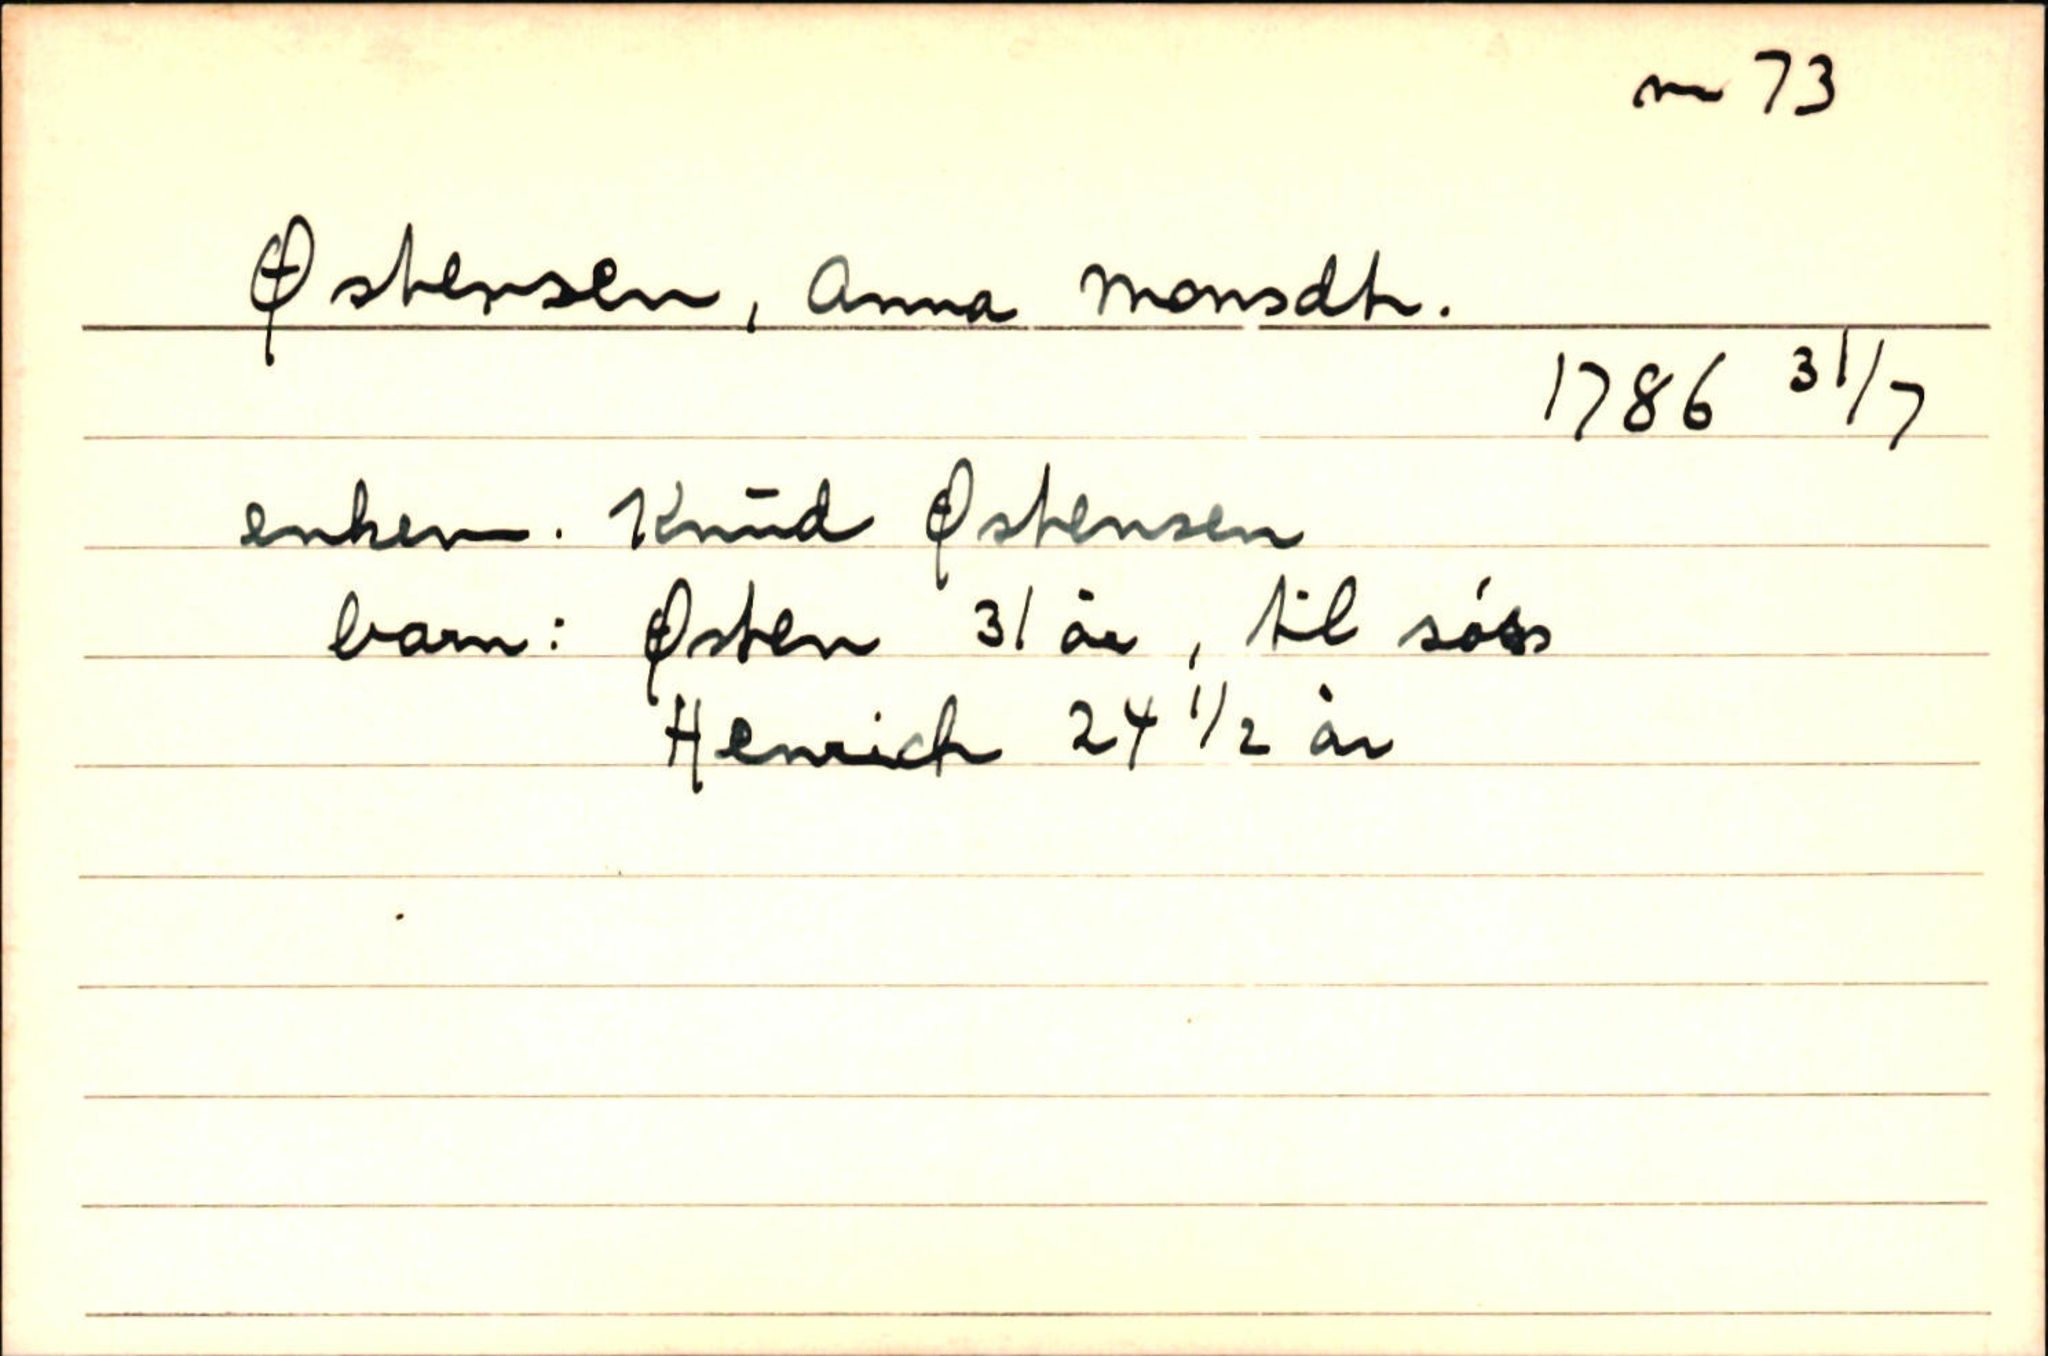 nr 73
Østensen, Anna Monsdtr.
1786 31/7
enkem. Knud Østensen
barn: Østen 31 år, til søss
Henrich 24 1/2 år